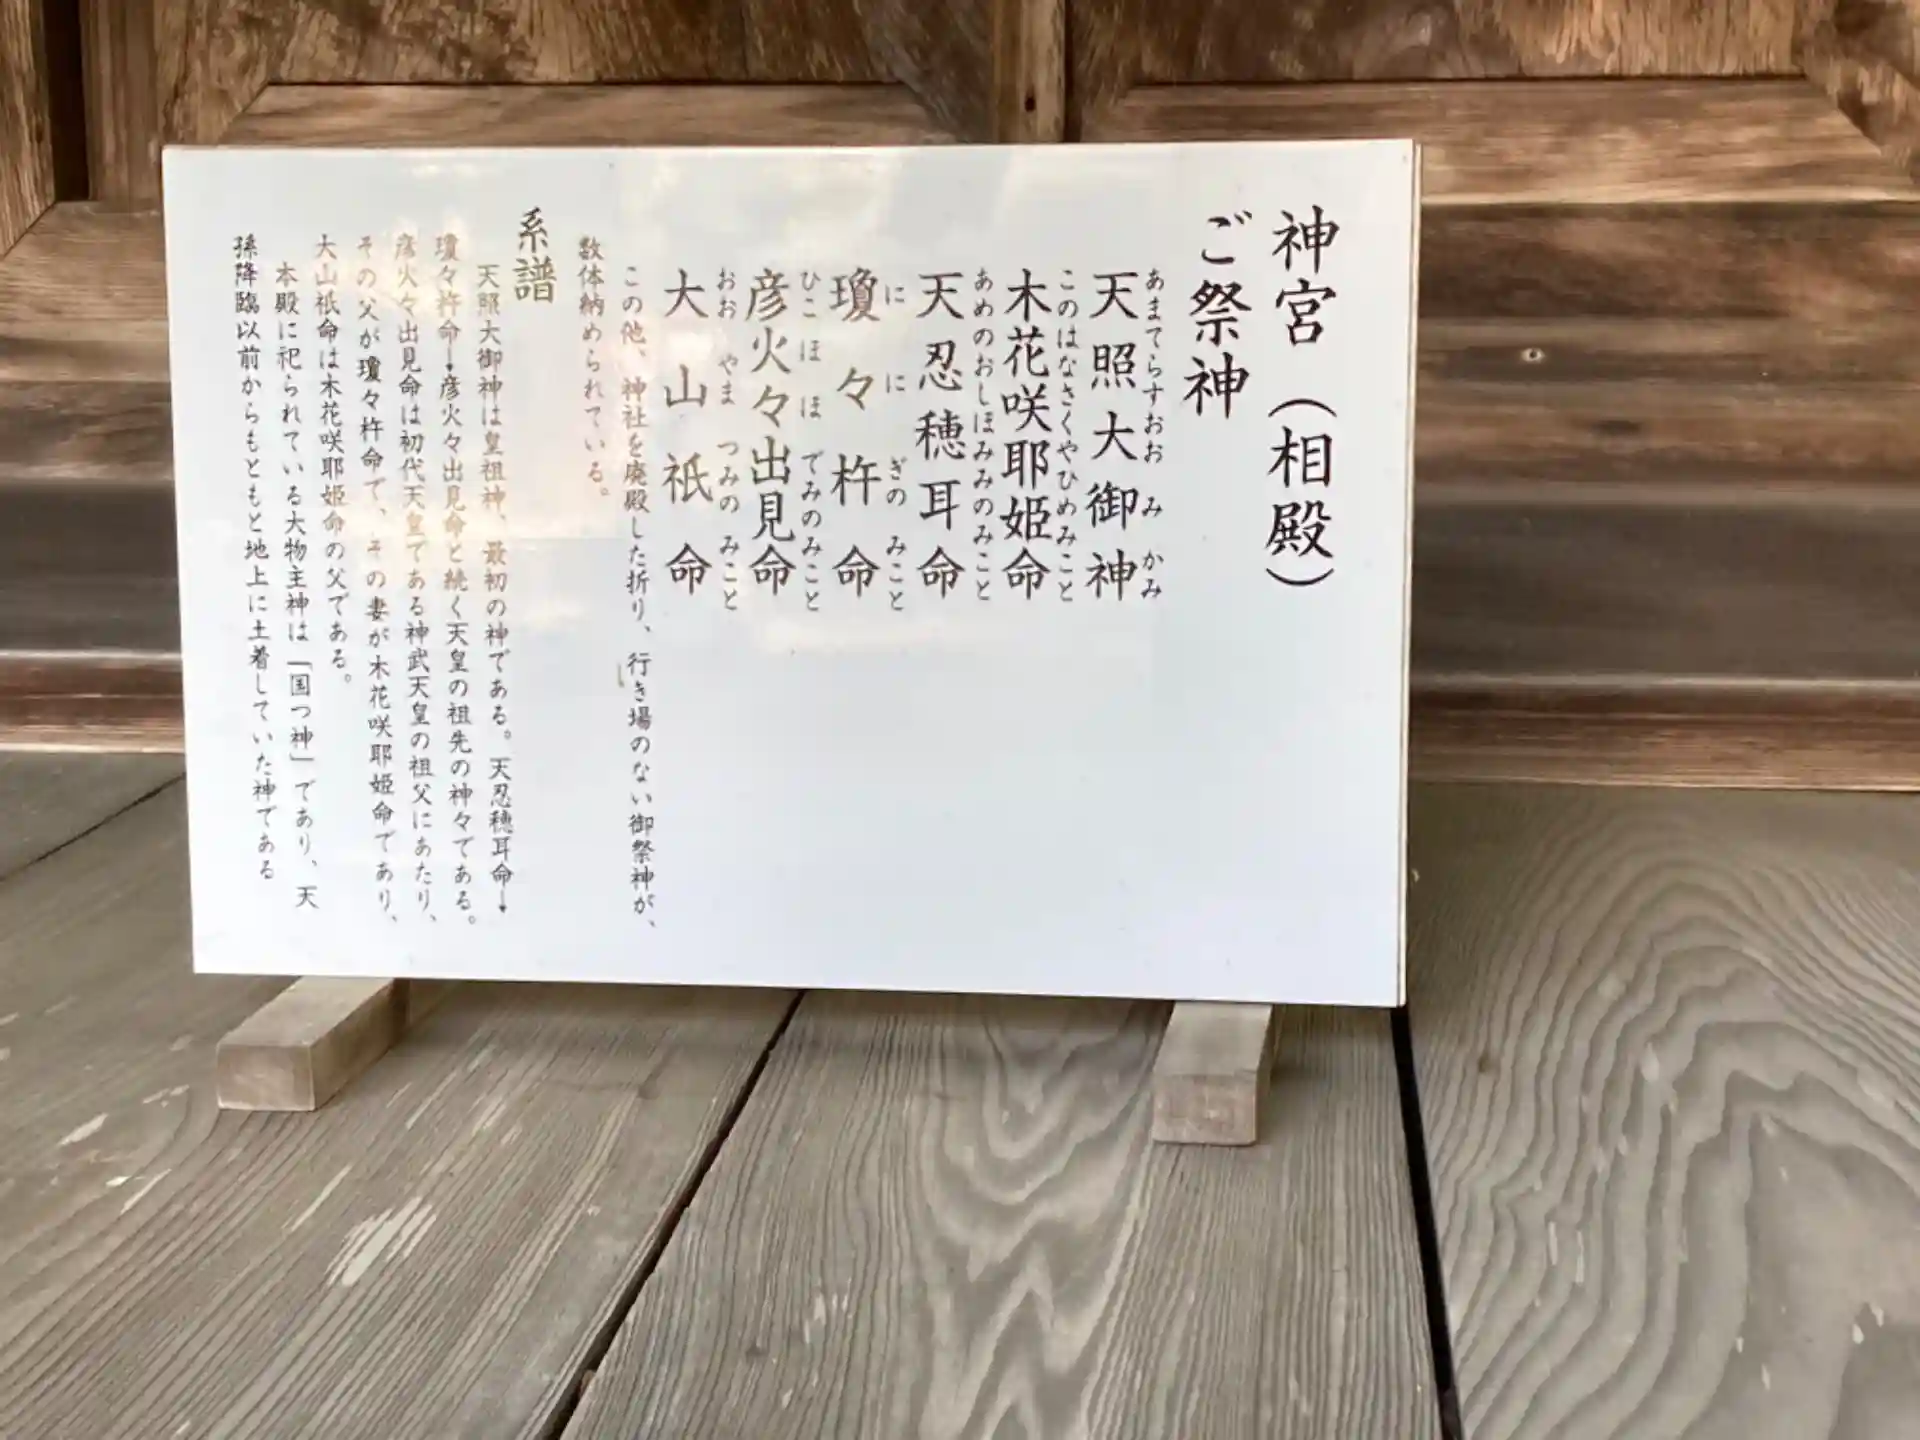 神宮（相殿）
ご祭神
あまてらすおお み かみ
天照大御神
このはなさくやひめみこと
木花咲耶姫命
あめのおしほみみのみこと
天忍穂耳命
に に ぎの みこと
瓊々杵命
ひこ ほ ほ でみのみこと
彦火々出見命
おお やま つみの みこと
大山祇命
この他、神社を廃殿した折り、行き場のない御祭神が、
数体納められている。
系譜
天照大御神は皇祖神、最初の神である。天忍穂耳命→
瓊々杵命→彦火々出見命と続く天皇の祖先の神々である。
彦火々出見命は初代天皇である神武天皇の祖父にあたり、
その父が瓊々杵命で、その妻が木花咲耶姫命であり、
大山祇命は木花咲耶姫命の父である。
本殿に祀られている大物主神は「国つ神」であり、天
孫降臨以前からもともと地上に土着していた神である